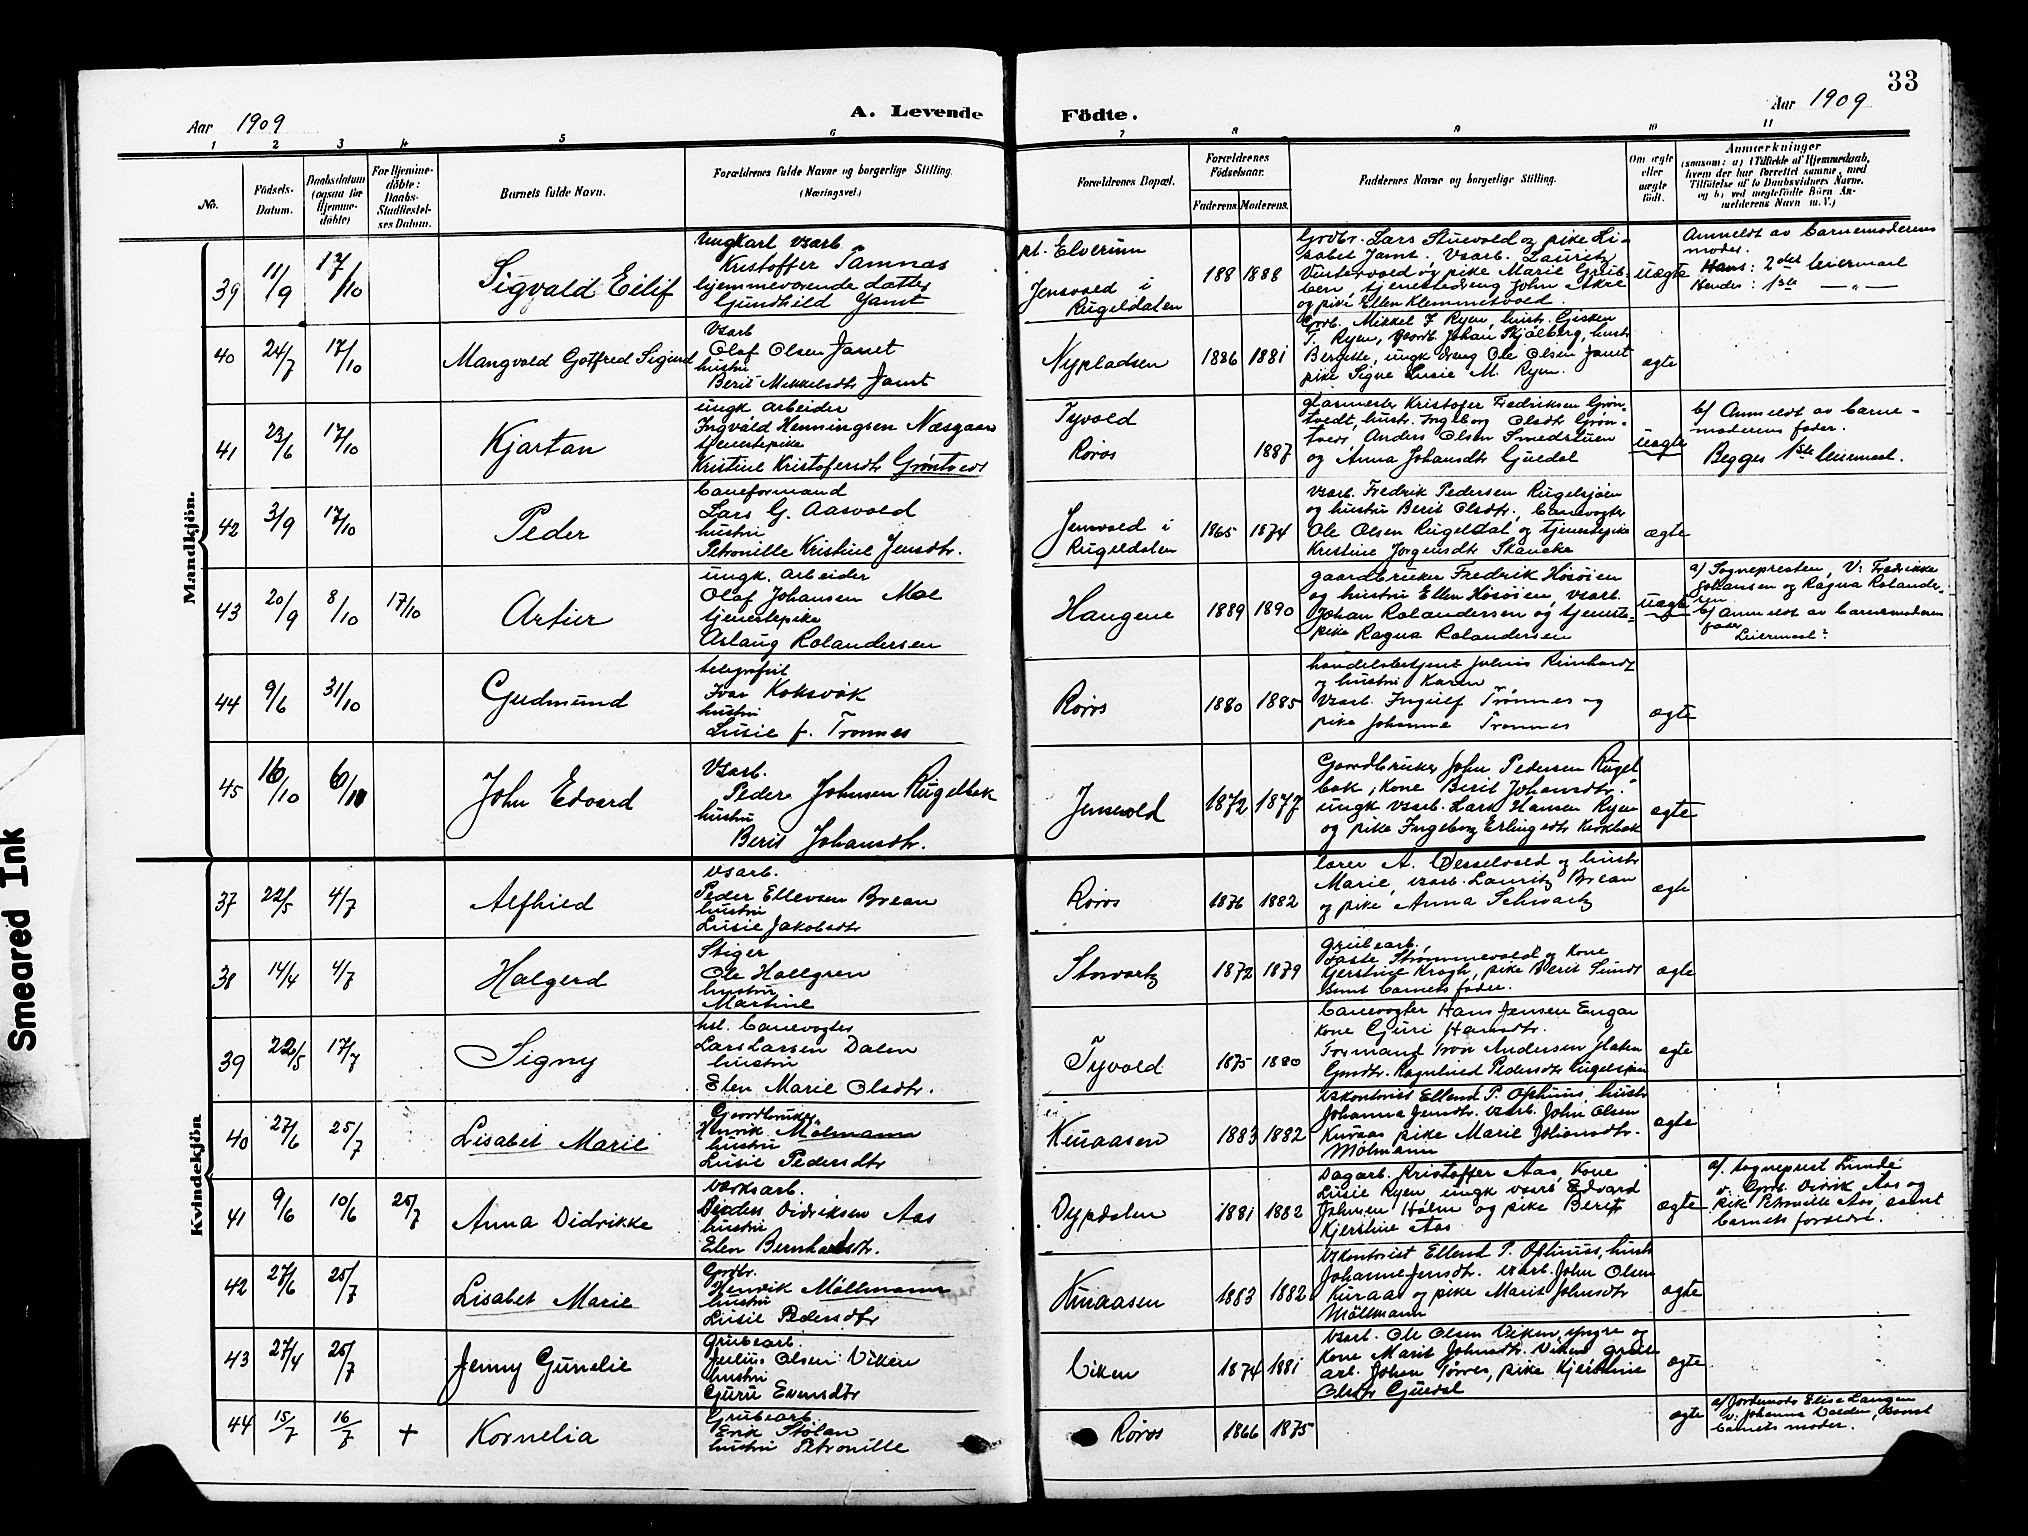 33
Aar 1909
A. Levende
Födte.
Aar 1909
1 2 3 4 5 6 7 8 9 10 11
No.
Födsels-
Datum.
Daabsdatum
(ogsaa for
Hjemme-
döbte)
For Hjemme-
döbte:
Daabs-
Stadfæstel-
ses Datum.
Barnets fulde Navn.
Forældrenes fulde Navne og borgerlige Stilling.
(Næringsvei.)
Forældrenes Bopæl.
Forældrenes
Födselsaar.
Faderens. Moderens.
Faddernes Navne og borgerlige Stilling.
Om ægte
eller
uægte
födt.
Anmærkninger
(saasom: a) i Tilfælde af Hjemmedaab,
hvem der har forrettet samme, med
Tilföielse af to Daabsvidners Navne.
og b) ved uægtefödte Börn An-
melderens Navn m. V.)
Mandkjön.
39 11/9 17/10 Sigvald Eilif
Ungkarl vsarb.
Kristoffer Tamnæs
hjemmeværende datter
Gundhild Jamt
pt. Elverum
Jensvold i
Rugeldalen
188 1888
Grdbr. Lars Stuevold og pike Li-
sabet Jamt, vsarb. Lauritz
Vintervold og pike Marie Grub-
ben, tjenestedreng John Akre
og pike Ellen Klemmetvold.
uægte
Anmeldt av barnemoderens
moder.
Hans: 2det leiermaal
Hendes: 1ste — " —
40 24/7 17/10 Mangvald Gotfred Sigurd
Vsarb
Olaf Olsen Jamt
hustru
Berit Mikkelsdtr Jamt
Nypladsen
1886 1881
Grdb. Mikkel J. Ryen, hustr. Gisken
T. Ryen, Grdb. Johan Skjølberg, hustr
Bergitte, ungk dreng Ole Olsen Jamt
pike Signe Lusie M. Ryen.
ægte
41 23/6 17/10 Kjartan
ungk. arbeider
Ingvald Henningsen Næsgaard
tjenestepike
Kristine Kristofersdtr Grøntvedt
Tyvold
Røros
1887
glasmester Kristofer Fredriksen Grøn-
tvedt, hustr. Ingeborg Olsdtr Grøn-
tvedt Anders Olsen Smedstuen
og Anna Johansdtr Gjuldal
uægte
b/ Anmeldt av barne-
moderens fader.
Begges 1ste leiermaal.
42 3/9 17/10 Peder
baneformand
Lars G. Aasvold
hustru
Petronille Kristine Jensdtr.
Jensvold i
Rugeldalen
1865 1874
vsarb. Fredrik Pedersen Rugelsjøen
og hustru Berit Olsdtr, banevogter
Ole Olsen Rugeldal og tjenestepike
Kristine Jørgensdtr Skancke
ægte
43 20/9 8/10 17/10 Artur
ungk. arbeider
Olaf Johansen Moe
tjenestepike
Aslaug Rolandersen
Haugene
1889 1890
gaardbruker Fredrik Hosøien
og hustru Ellen Hosøien, vsarb.
Johan Rolandersen og tjeneste-
pike Ragna Rolandersen
uægte
a/ Sognepresten, V: Fredrikke
Johansen og Ragna Rolander-
sen.
b/ Anmeldt av barnemoderens
fader
Leiermaal?
44 9/6 31/10 Gudmund
telegrafist
Ivar Koksvik
hustru
Lusie f. Trønnes
Røros
1880 1885
handelsbetjent Julius Reinhardt
og hustru Karen
Vsarb. Ingulf Trønnes og
pike Johanne Trønnes
ægte
45 16/10 6/11 John Edvard
Vsarb.
Peder Johnsen Rugelbak
hustru
Berit Johansdtr.
Jensvold
1872 1877
Gaardbruker John Pedersen Rugel
bak, Kone Berit Johansdtr.
ungk vsarb. Lars Hansen Ryen
og pike Ingeborg Erlingsdtr Kirkbak
ægte
Kvindekjön
37 22/5 4/7 Alfhild
vsarb.
Peder Ellevsen Brean
hustru
Lusie Jakobsdtr
Røros
1876 1882
lærer A. Wesselvold og hustr
Marie, vsarb. Lauritz Brean
og pike Anna Schwartz
ægte
38 14/4 4/7 Halgerd
Stiger
Ole Hallgren
hustru
Martine
Storvartz
1872 1879
grubearb.
Faste Strømmevold og Kone
Kjerstine Krogh, pike Berit Sundt
samt barnets fader.
ægte
39 22/5 17/7 Signy
hsl. banevogter
Lars Larsen Dalen
hustru
Elen Marie Olsdtr.
Tyvold
1875 1880
banevogter Hans Jensen Engan
kone Guri Hansdtr.
Formand Iver Andersen Floten
Grndtr. Ragnhild Pedersdtr Rugelsjøen
ægte
40 27/6 25/7 Lisabet Marie
Gaardbruker
Henrik Mølmann
hustru
Lusie Pedersdtr
Kuraasen
1883 1882
vskontorist Ellend P. Ophuus, hustr
Johanna Jensdtr. vsarb. John Olsen
Kuraas pike Marie Johansdtr.
Mølmann
ægte
41 9/6 10/6 25/7 Anna Didrikke
Værksarb.
Peder Didriksen Aas
hustru
Elen Bernhardsdtr.
Dypdalen
1881 1882
Dagarb. Kristoffer Aas, Kone
Lusie Ryen, ungk vsarb Edvard
Johnsen Holm og pike Berit
Kjerstine Aas
ægte
a/. sogneprest Lunde
v. Grdb. Didrik Aas og
pike Petronille Aas, samt
barnets forældre.
42 27/6 25/7 Lisabet Marie
Grdbr.
Henrik Møllmann
hustru
Lusie Pedersdtr
Kuraasen
1883 1882
vskontorist Ellend P. Ophuus, hustr
Johanne Jensdtr. vsarb. John Olsen
Kuraas og pike Marit Johnsdtr
Møllmann
ægte
43 27/4 25/7 Jenny Gunelie
Grubearb.
Julius Olsen Viken
hustru
Guru Evensdtr
Viken
1874 1881
Vsarb. Ole Olsen Viken, yngre og
Kone Marit Johnsdtr. Viken grube
arb. Johan Tørres, pike Kjerstine
Olsdtr Gjuldal
ægte
44 15/7 16/7 + Kornelia
Grubearb.
Erik Stølan
hustru Petronille
Røros
1866 1875
ægte
a/ Jordemoder Elise Langen
v: Johanna Dalden, samt
barnets moder.
Smeared Ink